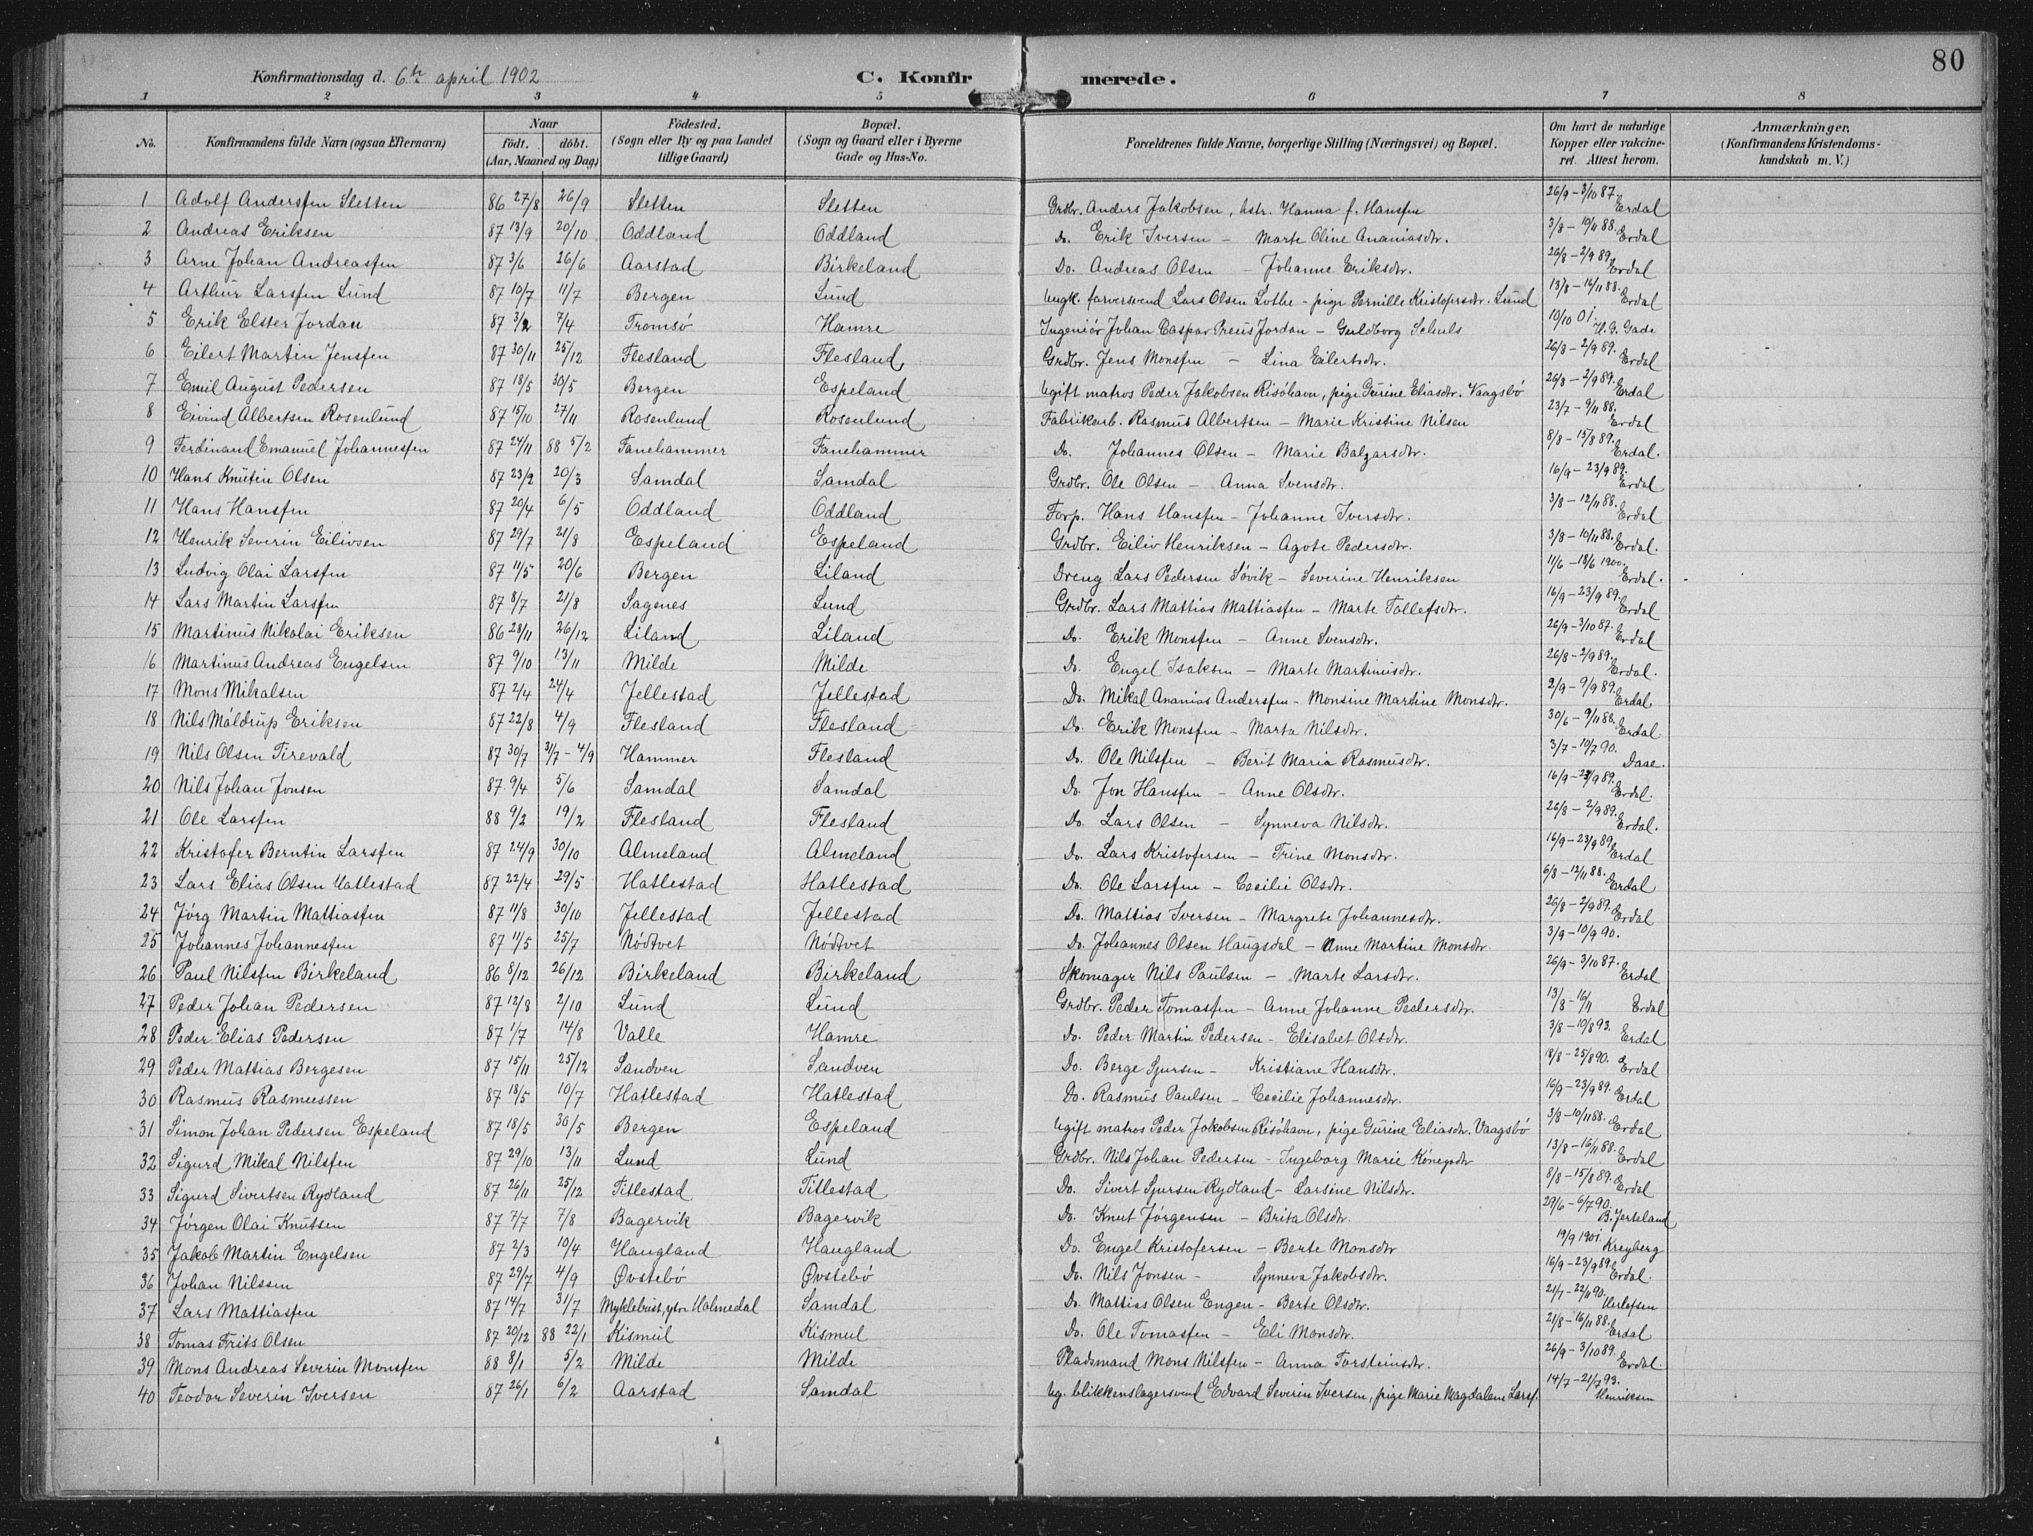 80
Konfirmationsdag d. 6te april 1902 C. Konfirmerede.
1 2 3 4 5 6 7 8
No. Konfirmandens fulde Navn (ogsaa Efternavn) Naar født. døbt. (Aar, Maaned og Dag) Fødested. (Sogn eller By og paa Landet tillige Gaard) Bopæl. (Sogn og Gaard eller i Byerne Gade og Hus-No. Forældrenes fulde Navne, borgerlige Stilling (Næringsvei) og Bopæl. Om havt de naturlige Kopper eller vakcineret. Attest herom. Anmærkninger, (Konfirmandens Kristendomskundskab m. V.)
1 Adolf Anderssen Sletten 86 27/8 26/9 Sletten Sletten Grdbr. Anders Jakobsen, hstr. Hanna f. Hanssen 26/9 – 3/10 87. Erdal
2 Andreas Eriksen 87 13/9 20/10 Oddland Oddland Do. Erik Iversen – Marte Oline Ananiasdtr. 3/8 – 10/11 88. Erdal
3 Arne Johan Andreassen 87 3/6 26/6 Aarstad Birkeland Do. Andreas Olsen – Johanne Eriksdtr. 26/8 – 2/9 89. Erdal
4 Arthur Larssen Lund 87 10/7 11/7 Bergen Lund Ungk. farversvend Lars Olsen Lothe – pige Pernille Kristofersdtr. Lund 13/8 – 16/11 88. Erdal
5 Erik Elster Jordan 87 3/2 7/4 Tromsø Hamre Ingeniør Johan Caspar Preus Jordan – Guldborg Schuls 10/10 01. H. G. Gade
6 Eilert Martin Jenssen 87 30/11 25/12 Flesland Flesland Grdbr. Jens Monssen – Lina Eilertsdtr. 26/8 – 2/9 89. Erdal
7 Emil August Pedersen 87 18/5 30/5 Bergen Espeland Ugift matros Peder Jakobsen Risøhavn, pige Gurine Eliasdtr. Vaagsbø 26/8 – 2/9 89. Erdal
8 Eivind Albertsen Rosenlund 87 15/10 27/11 Rosenlund Rosenlund Fabrikarb. Rasmus Albertsen – Marie Kristine Nilsen 23/7 – 9/11 88. Erdal
9 Ferdinand Emanuel Johannessen 87 24/11 88 5/2 Fanehammer Fanehammer Do. Johannes Olsen – Marie Balzarsdtr. 8/8 – 15/8 89. Erdal.
10 Hans Knutin Olsen 87 23/2 20/3 Samdal Samdal Grdbr. Ole Olsen – Anna Svensdtr. 16/9 – 23/9 89. Erdal
11 Hans Hanssen 87 20/4 6/5 Oddland Oddland Forp. Hans Hanssen – Johanne Iversdtr. 3/8 – 12/11 88. Erdal
12 Henrik Severin Eilivsen 87 29/7 21/8 Espeland Espeland Grdbr. Eiliv Henriksen – Agote Pedersdtr. 3/8 – 10/11 88. Erdal.
13 Ludvig Olai Larssen 87 11/5 20/6 Bergen Liland Dreng Lars Pedersen Søvik – Severine Henriksen 11/6 – 18/6 1900. Erdal.
14 Lars Martin Larssen 87 8/7 21/8 Sagenes Lund Grdbr. Lars Mattias Mattiassen – Marte Tollefsdtr. 16/9 – 23/9 89. Erdal
15 Martinus Nikolai Eriksen 86 28/11 26/12 Liland Liland Do. Erik Monssen – Anne Svensdtr. 26/9 – 3/10 87. Erdal
16 Martinus Andreas Engelsen 87 9/10 13/11 Milde Milde Do. Engel Isaksen – Marte Martinusdtr. 26/8 – 2/9 89. Erdal.
17 Mons Mikalsen 87 2/4 24/4 Jellestad Jellestad Do. Mikal Ananias Anderssen – Monsine Martine Monsdtr. 2/9 – 9/9 89. Erdal
18 Nils Møldrup Eriksen 87 22/8 4/9 Flesland Flesland Do. Erik Monssen – Marta Nilsdtr. 30/6 – 9/11 88. Erdal
19 Nils Olsen Tirevald 87 30/7 31/7 – 4/9 Hammer Flesland Do. Ole Nilssen – Berit Maria Rasmusdtr. 3/7 – 10/7 90. Daae.
20 Nils Johan Jonsen 87 9/4 5/6 Samdal Samdal Do. Jon Hanssen – Anne Olsdtr. 16/9 – 23/9 89. Erdal.
21 Ole Larssen 88 9/2 19/2 Flesland Flesland Do. Lars Olsen – Synneva Nilsdtr. 26/8 – 2/9 89. Erdal.
22 Kristofer Berntin Larssen 87 24/9 30/10 Almeland Almeland Do. Lars Kristofersen – Trine Monsdtr. 16/9 – 23/9 89. Erdal
23 Lars Elias Olsen Hatlestad 87 22/4 29/5 Hatlestad Hatlestad Do. Ole Larssen – Cecilie Olsdtr. 6/8 – 12/11 88. Erdal
24 Jørg Martin Mattiassen 87 11/8 30/10 Jellestad Jellestad Do. Mattias Iversen – Margrete Johannesdtr. 26/8 – 2/9 89. Erdal
25 Johannes Johannessen 87 11/5 25/7 Nødtvet Nødtvet Do. Johannes Olsen Haugsdal – Anne Martine Monsdtr. 3/9 – 10/9 90.
26 Paul Nilssen Birkeland 86 8/12 26/12 Birkeland Birkeland Skomager Nils Paulsen – Marte Larsdtr. 26/9 – 3/10 87. Erdal
27 Peder Johan Pedersen 87 12/8 2/10 Lund Lund Grdbr. Peder Tomassen – Anne Johanne Pedersdtr. 13/8 – 16/11 Erdal
28 Peder Elias Pedersen 87 1/7 14/8 Valle Hamre Do. Peder Martin Pedersen – Elisabet Olsdtr. 3/8 – 10/8 93. Erdal
29 Peder Mattias Bergesen 87 15/11 25/12 Sandven Sandven Do. Berge Sjursen – Kristiane Hansdtr. 18/8 – 25/8 90. Erdal
30 Rasmus Rasmussen 87 18/5 10/7 Hatlestad Hatlestad Do. Rasmus Paulsen – Cecilie Johannesdtr. 16/9 – 23/9 89. Erdal
31 Simon Johan Pedersen Espeland 87 18/5 30/5 Bergen Espeland Ugift matros Peder Jakobsen Risøhavn, pige Gurine Eliasdtr. Vaagsbø 3/8 – 10/11 88. Erdal
32 Sigurd Mikal Nilssen 87 29/10 13/11 Lund Lund Grdbr. Nils Johan Pedersen – Ingeborg Marie 13/8 – 16/11 88. Erdal
33 Sigurd Sivertsen Rydland 87 26/11 25/12 Titlestad Titlestad Do. Sivert Sjursen Rydland – Larsine Nilsdtr. 8/8 – 15/8 89. Erdal
34 Jørgen Olai Knutsen 87 7/7 7/8 Bagervik Bagervik Do. Knut Jørgensen – Brita Olsdtr. 29/6 – 6/7 90. B. Jerteland
35 Jakob Martin Engelsen 87 2/3 10/4 Haugland Haugland Do. Engel Kristofersen – Berte Monsdtr 19/9 1901. Kreyberg
36 Johan Nilssen 87 29/7 4/9 Øvstebø Øvstebø Do. Nils Jonsen – Synneva Jakobsdtr. 16/9 – 23/9 89. Erdal.
37 Lars Mattiassen 87 14/7 31/7 Myklebust, ytre Holmedal Samdal Do. Mattias Olsen Engen – Berte Olsdtr. 21/7 – 22/11 90.
38 Tomas Frits Olsen 87 20/12 88 22/1 Kismul Kismul Do. Ole Tomassen – Eli Monsdtr. 21/8 – 16/11 88. Erdal
39 Mons Andreas Severin Monssen 88 8/1 5/2 Milde Milde Pladsmand Mons Nilssen – Anna Torsteinsdtr. 26/9 – 3/10 89. Erdal.
40 Teodor Severin Iversen 87 26/1 6/2 Aarstad Samdal Ug. blikkenslagersvend Edvard Severin Iversen, pige Marie Magdalene Larss. 14/7 – 21/7 93. Henriksen